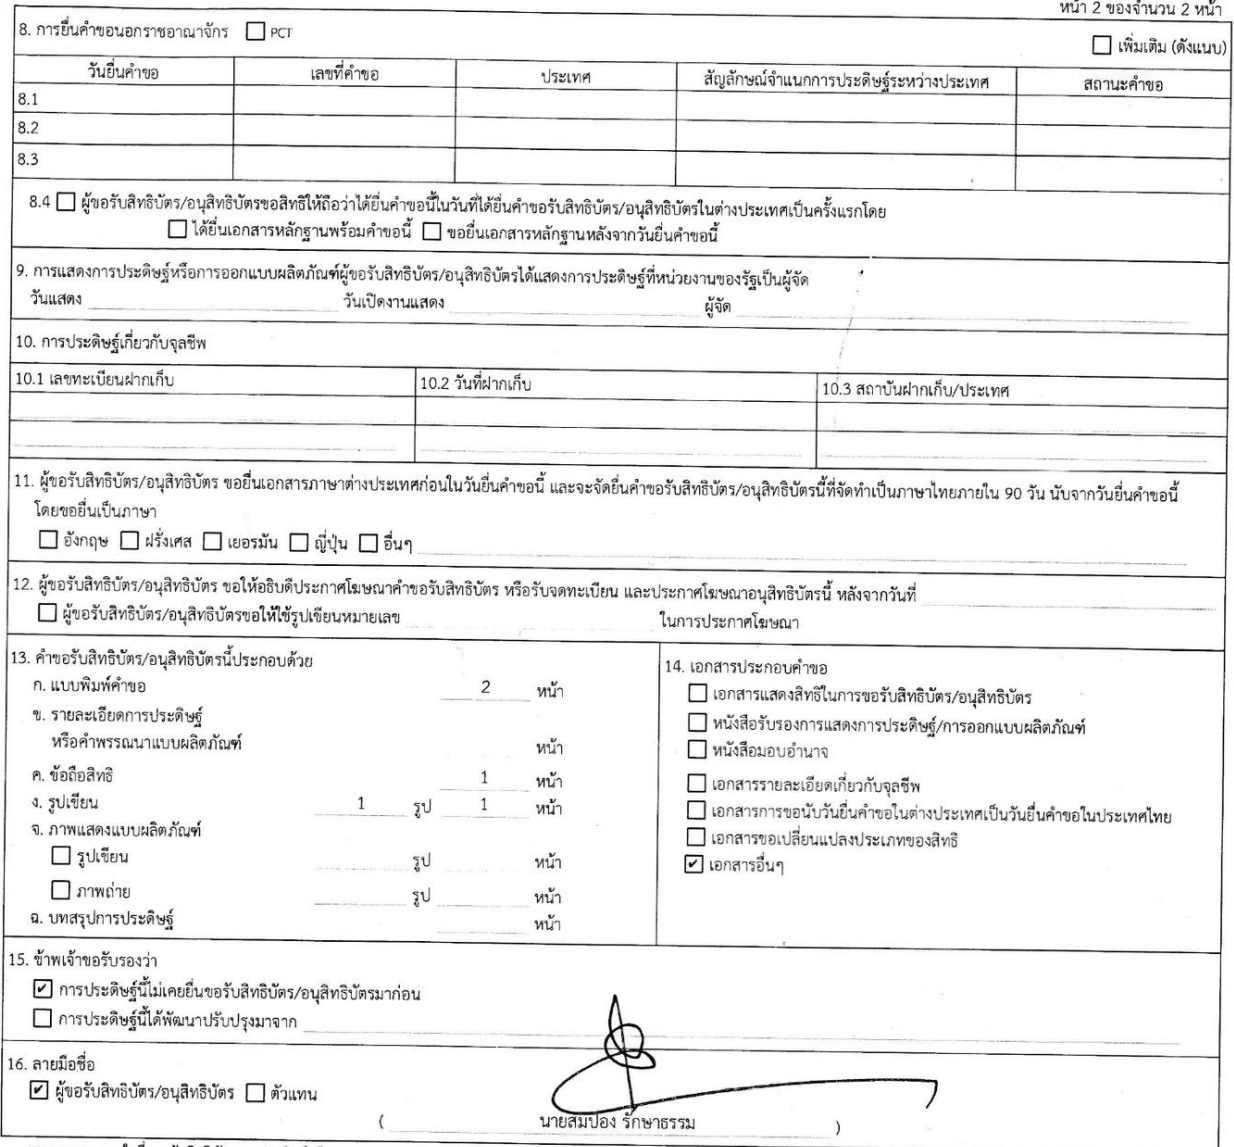 หน้า 2 ของจำนวน 2 หน้า
8. การยื่นคำขอนอกราชอาณาจักร PCT
เพิ่มเติม (ดังแนบ)
วันยื่นคำขอ เลขที่คำขอ ประเทศ สัญลักษณ์จำแนกการประดิษฐ์ระหว่างประเทศ สถานะคำขอ
8.1
8.2
8.3
8.4 ผู้ขอรับสิทธิบัตร/อนุสิทธิบัตรขอสิทธิให้ถือว่าได้ยื่นคำขอนี้ในวันที่ได้ยื่นคำขอรับสิทธิบัตร/อนุสิทธิบัตรในต่างประเทศเป็นครั้งแรกโดย
ได้ยื่นเอกสารหลักฐานพร้อมคำขอนี้ ขอยื่นเอกสารหลักฐานหลังจากวันยื่นคำขอนี้
9. การแสดงการประดิษฐ์หรือการออกแบบผลิตภัณฑ์ผู้ขอรับสิทธิบัตร/อนุสิทธิบัตรได้แสดงการประดิษฐ์ที่หน่วยงานของรัฐเป็นผู้จัด
วันแสดง วันเปิดงานแสดง ผู้จัด
10. การประดิษฐ์เกี่ยวกับจุลชีพ
10.1 เลขทะเบียนฝากเก็บ 10.2 วันที่ฝากเก็บ 10.3 สถาบันฝากเก็บ/ประเทศ
11. ผู้ขอรับสิทธิบัตร/อนุสิทธิบัตร ขอยื่นเอกสารภาษาต่างประเทศก่อนในวันยื่นคำขอนี้ และจะจัดยื่นคำขอรับสิทธิบัตร/อนุสิทธิบัตรนี้ที่จัดทำเป็นภาษาไทยภายใน 90 วัน นับจากวันยื่นคำขอนี้
โดยขอยื่นเป็นภาษา
อังกฤษ ฝรั่งเศส เยอรมัน ญี่ปุ่น อื่นๆ
12. ผู้ขอรับสิทธิบัตร/อนุสิทธิบัตร ขอให้อธิบดีประกาศโฆษณาคำขอรับสิทธิบัตร หรือรับจดทะเบียน และประกาศโฆษณาอนุสิทธิบัตรนี้ หลังจากวันที่
ผู้ขอรับสิทธิบัตร/อนุสิทธิบัตรขอให้ใช้รูปเขียนหมายเลข ในการประกาศโฆษณา
13. คำขอรับสิทธิบัตร/อนุสิทธิบัตรนี้ประกอบด้วย
ก. แบบพิมพ์คำขอ 2 หน้า
ข. รายละเอียดการประดิษฐ์
หรือคำพรรณนาแบบผลิตภัณฑ์ หน้า
ค. ข้อถือสิทธิ 1 หน้า
ง. รูปเขียน 1 รูป 1 หน้า
จ. ภาพแสดงแบบผลิตภัณฑ์
รูปเขียน รูป หน้า
ภาพถ่าย รูป หน้า
ฉ. บทสรุปการประดิษฐ์ หน้า
14. เอกสารประกอบคำขอ
เอกสารแสดงสิทธิในการขอรับสิทธิบัตร/อนุสิทธิบัตร
หนังสือรับรองการแสดงการประดิษฐ์/การออกแบบผลิตภัณฑ์
หนังสือมอบอำนาจ
เอกสารรายละเอียดเกี่ยวกับจุลชีพ
เอกสารการขอนับวันยื่นคำขอในต่างประเทศเป็นวันยื่นคำขอในประเทศไทย
เอกสารขอเปลี่ยนแปลงประเภทของสิทธิ
เอกสารอื่นๆ
15. ข้าพเจ้าขอรับรองว่า
การประดิษฐ์นี้ไม่เคยยื่นขอรับสิทธิบัตร/อนุสิทธิบัตรมาก่อน
การประดิษฐ์นี้ได้พัฒนาปรับปรุงมาจาก
16. ลายมือชื่อ
ผู้ขอรับสิทธิบัตร/อนุสิทธิบัตร ตัวแทน
( นายสมปอง รักษาธรรม )